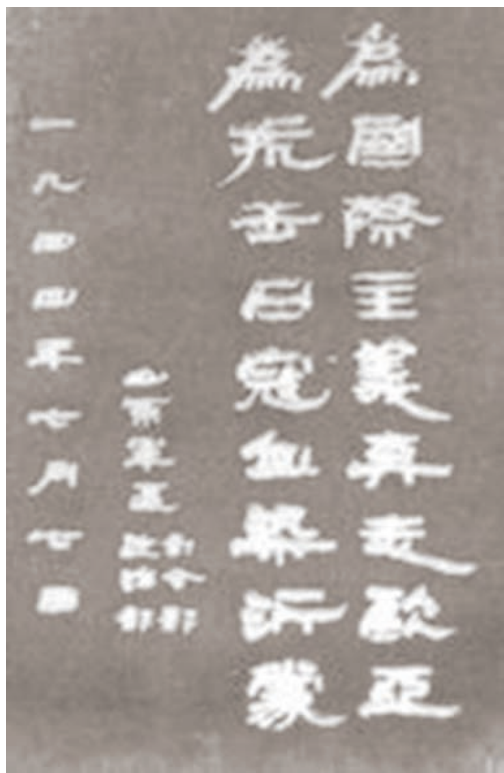 為國際主義奔走歐亞
為抗击日寇血染沂蒙
山東軍區
司令部
政治部
一九四四年七月七日